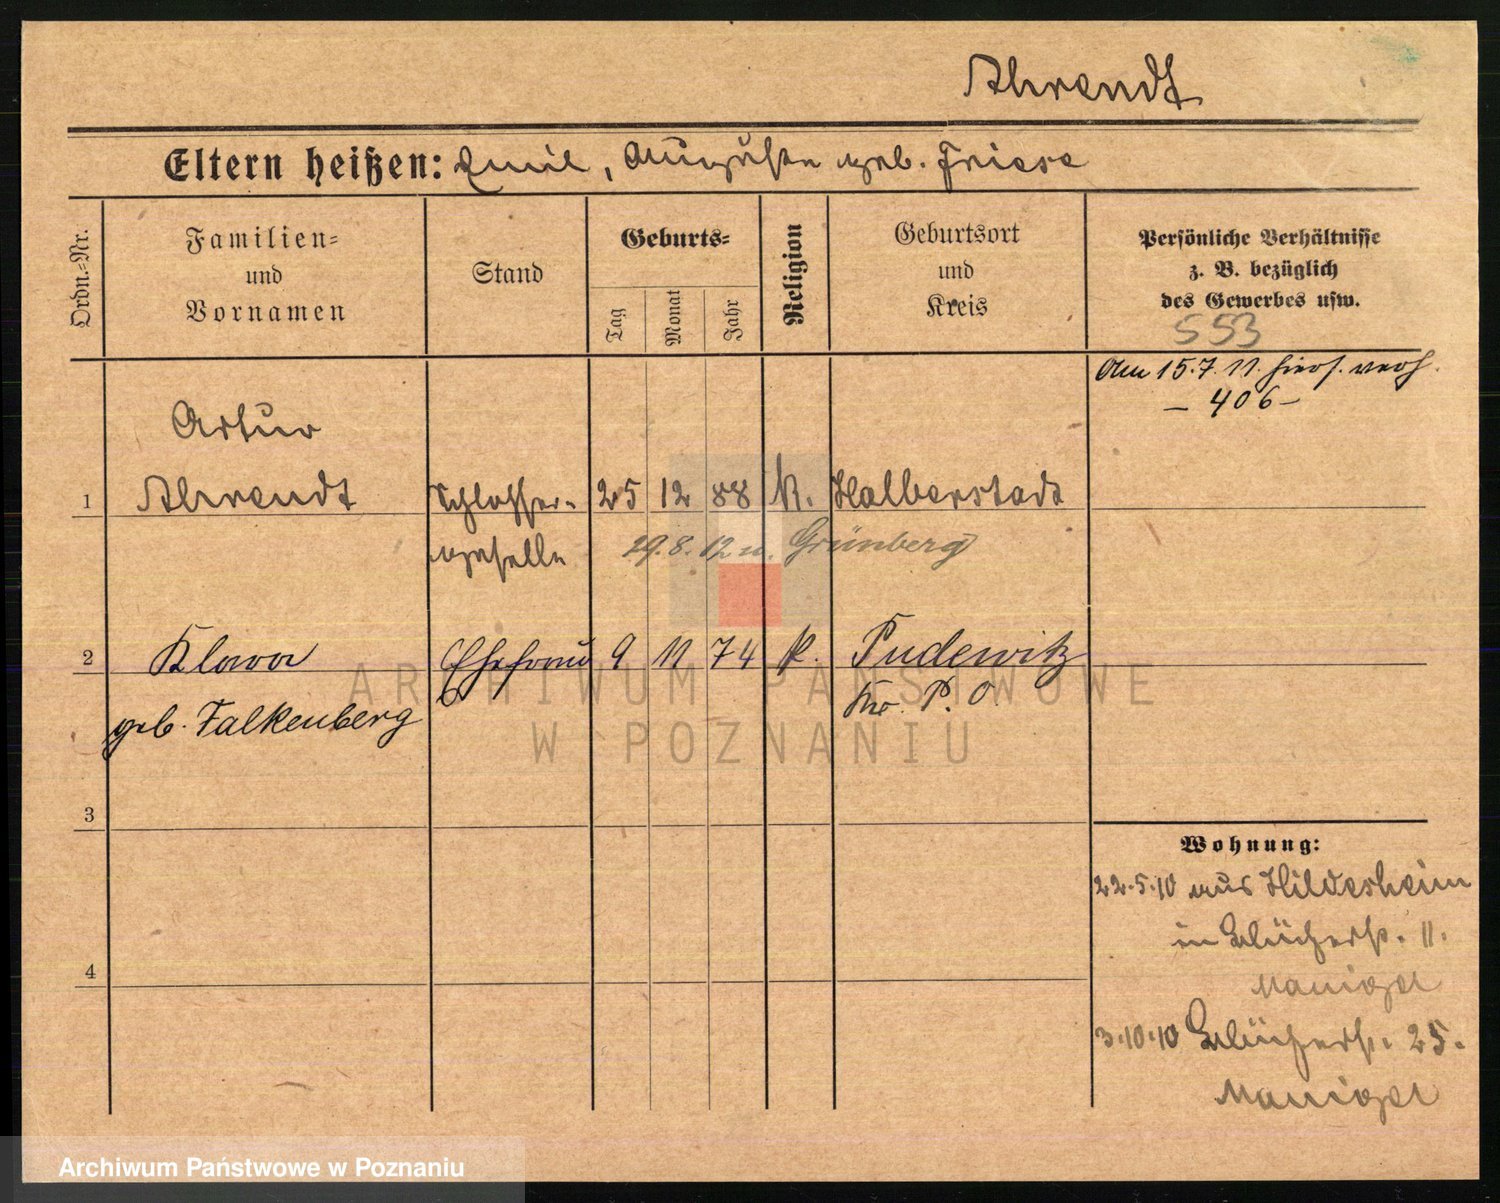 Ahrendt
Eltern heißen: Emil, Auguste geb. Friese
Ordn.=Nr.
Familien=
und
Vornamen
Stand
Geburts=
Tag
Monat
Jahr
Religion
Geburtsort
und
Kreis
Persönliche Verhältnisse
z. B. bezüglich
des Gewerbes usw.
553
Am 15.7.11. hiers. verh.
– 406 –
Artur
1 Ahrendt Schlosser- 25 12 88 k. Halberstadt
geselle 29.8.12 n. Grünberg
2 Klara Ehefrau 9 11 74 k. Pudewitz
geb. Falkenberg Kr. P. O.
3
4
Wohnung:
22.5.10 aus Hildesheim
in Blücherstr. 11.
3.10.10 Blücherstr. 25.
ARCHIWUM PAŃSTWOWE
W POZNANIU
Archiwum Państwowe w Poznaniu